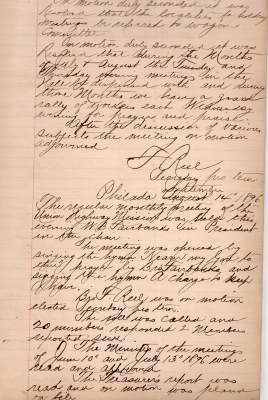 On motion duly seconded it was
resolved that the
meetings be referred to organ
Committee
On motion duly seconded it was
Resolved that during the Months
of July & August the Tuesday and
Thursday evening meetings in the
be suspended with and during
those Months have a grand
rally of each Wednesday
evening for prayer and praise.
After the discussion of various
subjects the meeting on motion
adjourned
F. Reel
Secretary pro tem
September
Philada August 14th 1896
The regular monthly meeting of the
Union Highway Mission was held this
evening W. D. Fairbanks Vice President
in the Chair.
The meeting was opened by
singing the hymn Nearer my God to
thee, prayer by Bro Fairbanks, and
singing the hymn A Charge to keep
I have.
Bro F. Reel was on motion
elected Secretary pro tem.
The roll was called and
20 members responded 2 Members
reported sick
The Minutes of the meetings
of June 10th and July 13th 1896 were
read and approved
The Treasurers report was
read and on motion was placed
on file